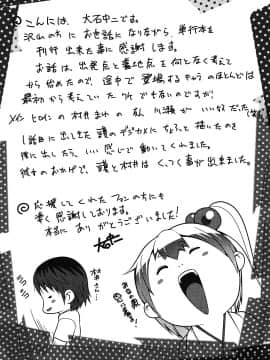 ◎こんにちは、大石中二です。
沢山の方にお世話になりながら、単行本を
刊行出来た事に感謝します。
お話は、出発点と着地点を何となく考えて
から始めたので、途中で登場するキャラのほとんどは
最初から考えていた わけでもないのですが、
メインヒロインの村井さんの友人 川瀬が いい奴だったな
1話目に出てきた頭のデジカメにちょっと描いたのを
後に出したら、いい感じで動いてくれました。
彼女のおかげで、頭と村井はくっつく事が出来ました。
◎応援してくれたファンの方にも
凄く感謝しております。
本当に ありがとうございました!
大石中二
村井さん…